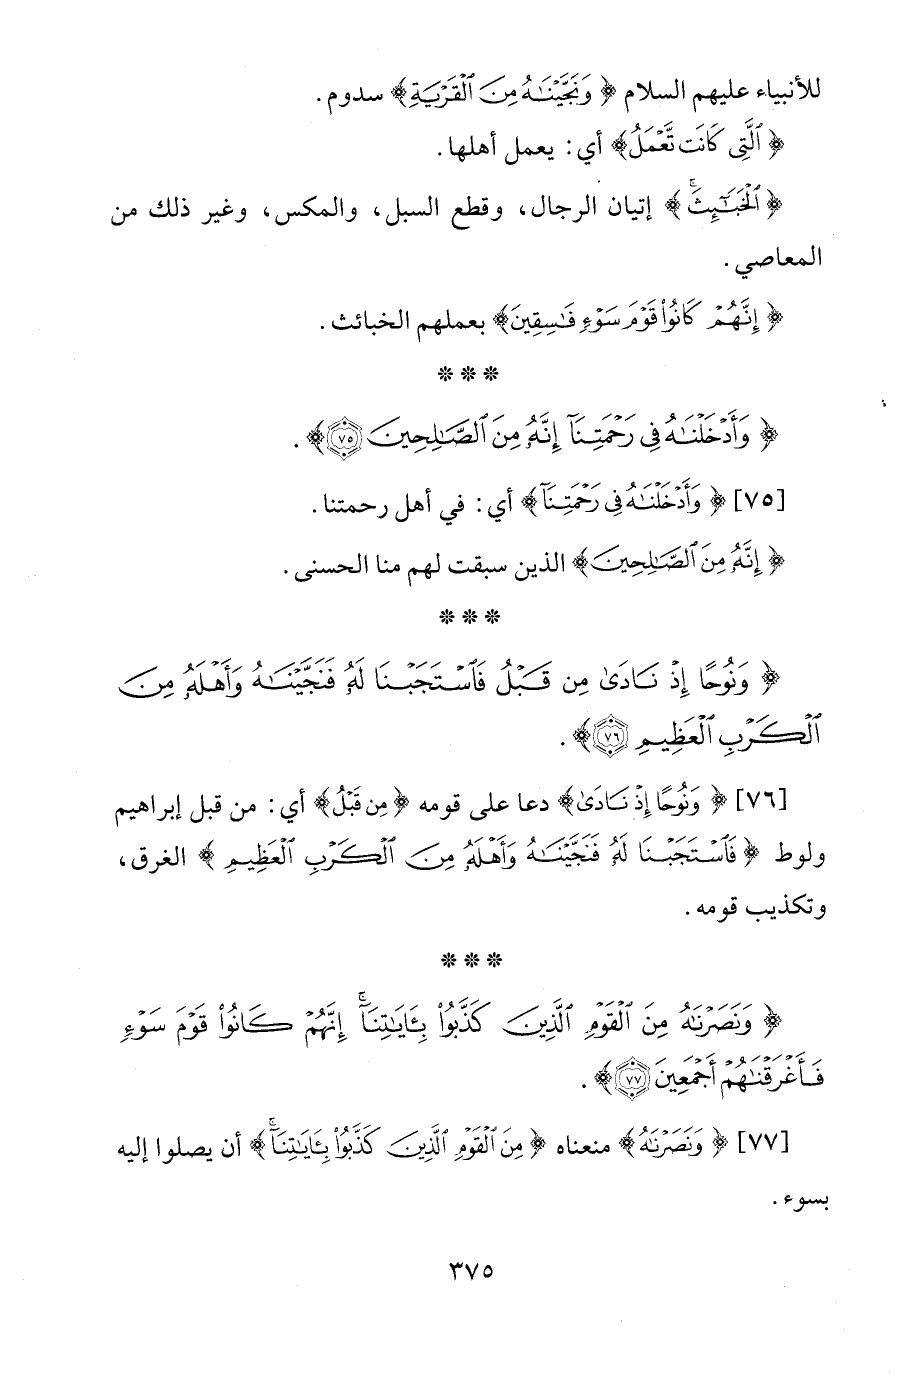 للأنبياء عليهم السلام ﴿ وَنَجَّيْنَـٰهُ مِنَ ٱلْقَرْيَةِ ﴾ سدوم.
﴿ ٱلَّتِي كَانَت تَّعْمَلُ ﴾ أي: يعمل أهلها.
﴿ ٱلْخَبَـٰٓئِثَۚ ﴾ إتيان الرجال، وقطع السبل، والمكس، وغير ذلك من
المعاصي.
﴿ إِنَّهُمْ كَانُوا۟ قَوْمَ سَوْءٍ فَـٰسِقِينَ ﴾ بعملهم الخبائث.
* * *
﴿ وَأَدْخَلْنَـٰهُ فِي رَحْمَتِنَآ إِنَّهُۥ مِنَ ٱلصَّـٰلِحِينَ ٧٥ ﴾.
[٧٥] ﴿ وَأَدْخَلْنَـٰهُ فِي رَحْمَتِنَآ ﴾ أي: في أهل رحمتنا.
﴿ إِنَّهُۥ مِنَ ٱلصَّـٰلِحِينَ ﴾ الذين سبقت لهم منا الحسنى.
* * *
﴿ وَنُوحًا إِذْ نَادَىٰ مِن قَبْلُ فَٱسْتَجَبْنَا لَهُۥ فَنَجَّيْنَـٰهُ وَأَهْلَهُۥ مِنَ
ٱلْكَرْبِ ٱلْعَظِيمِ ٧٦ ﴾.
[٧٦] ﴿ وَنُوحًا إِذْ نَادَىٰ ﴾ دعا على قومه ﴿ مِن قَبْلُ ﴾ أي: من قبل إبراهيم
ولوط ﴿ فَٱسْتَجَبْنَا لَهُۥ فَنَجَّيْنَـٰهُ وَأَهْلَهُۥ مِنَ ٱلْكَرْبِ ٱلْعَظِيمِ ﴾ الغرق،
وتكذيب قومه.
* * *
﴿ وَنَصَرْنَـٰهُ مِنَ ٱلْقَوْمِ ٱلَّذِينَ كَذَّبُوا۟ بِـَٔايَـٰتِنَآۚ إِنَّهُمْ كَانُوا۟ قَوْمَ سَوْءٍ
فَأَغْرَقْنَـٰهُمْ أَجْمَعِينَ ٧٧ ﴾.
[٧٧] ﴿ وَنَصَرْنَـٰهُ ﴾ منعناه ﴿ مِنَ ٱلْقَوْمِ ٱلَّذِينَ كَذَّبُوا۟ بِـَٔايَـٰتِنَآۚ ﴾ أن يصلوا إليه
بسوء.
٣٧٥